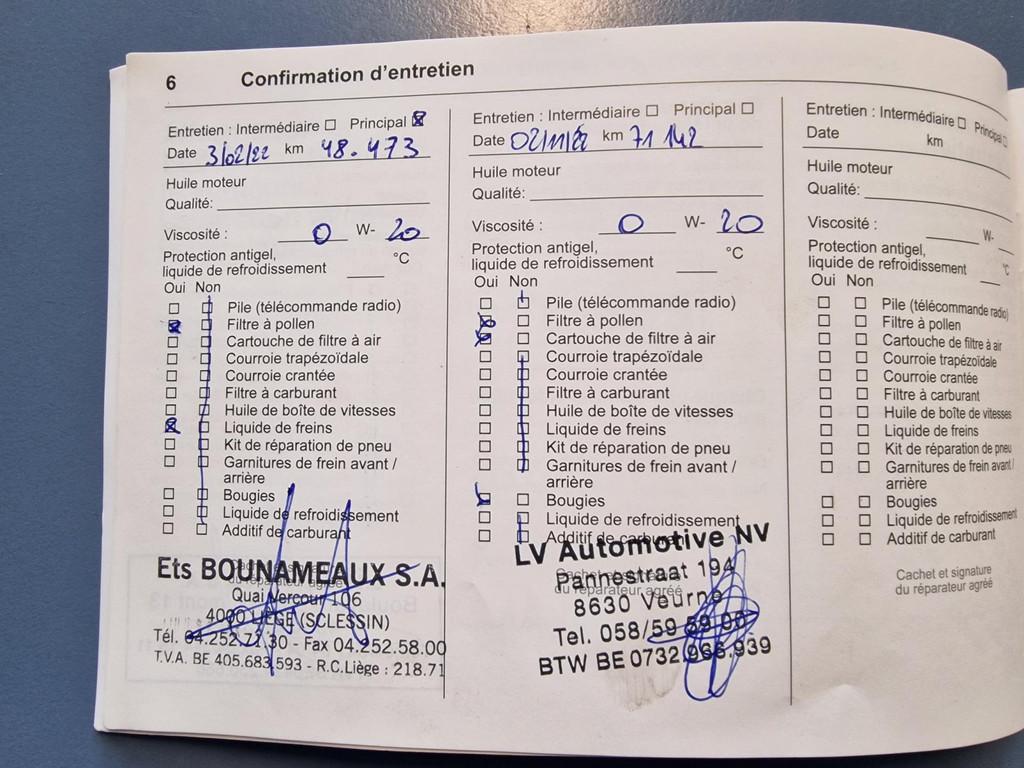 6 Confirmation d'entretien
Entretien : Intermédiaire ☐ Principal ☒
Date 3/02/22 km 48.473
Huile moteur
Qualité:
Viscosité : 0 W- 20
Protection antigel,
liquide de refroidissement °C
Oui Non
Pile (télécommande radio)
Filtre à pollen
Cartouche de filtre à air
Courroie trapézoïdale
Courroie crantée
Filtre à carburant
Huile de boîte de vitesses
Liquide de freins
Kit de réparation de pneu
Garnitures de frein avant /
arrière
Bougies
Liquide de refroidissement
Additif de carburant
Cachet et signature
du réparateur agréé
Ets BOUNAMEAUX S.A.
Quai Vercour 106
4000 LIEGE (SCLESSIN)
Tél. 04.252.71.30 - Fax 04.252.58.00
T.V.A. BE 405.683.593 - R.C.Liège : 218.71
Entretien : Intermédiaire ☐ Principal ☐
Date 02/11/22 km 71 142
Huile moteur
Qualité:
Viscosité : 0 W- 20
Protection antigel,
liquide de refroidissement °C
Oui Non
Pile (télécommande radio)
Filtre à pollen
Cartouche de filtre à air
Courroie trapézoïdale
Courroie crantée
Filtre à carburant
Huile de boîte de vitesses
Liquide de freins
Kit de réparation de pneu
Garnitures de frein avant /
arrière
Bougies
Liquide de refroidissement
Additif de carburant
Cachet et signature
du réparateur agréé
LV Automotive NV
Pannestraat 194
8630 Veurne
Tel. 058/59 59 90
BTW BE 0732.966.939
Entretien : Intermédiaire ☐ Principal ☐
Date km
Huile moteur
Qualité:
Viscosité : W-
Protection antigel,
liquide de refroidissement °C
Oui Non
Pile (télécommande radio)
Filtre à pollen
Cartouche de filtre à air
Courroie trapézoïdale
Courroie crantée
Filtre à carburant
Huile de boîte de vitesses
Liquide de freins
Kit de réparation de pneu
Garnitures de frein avant /
arrière
Bougies
Liquide de refroidissement
Additif de carburant
Cachet et signature
du réparateur agréé